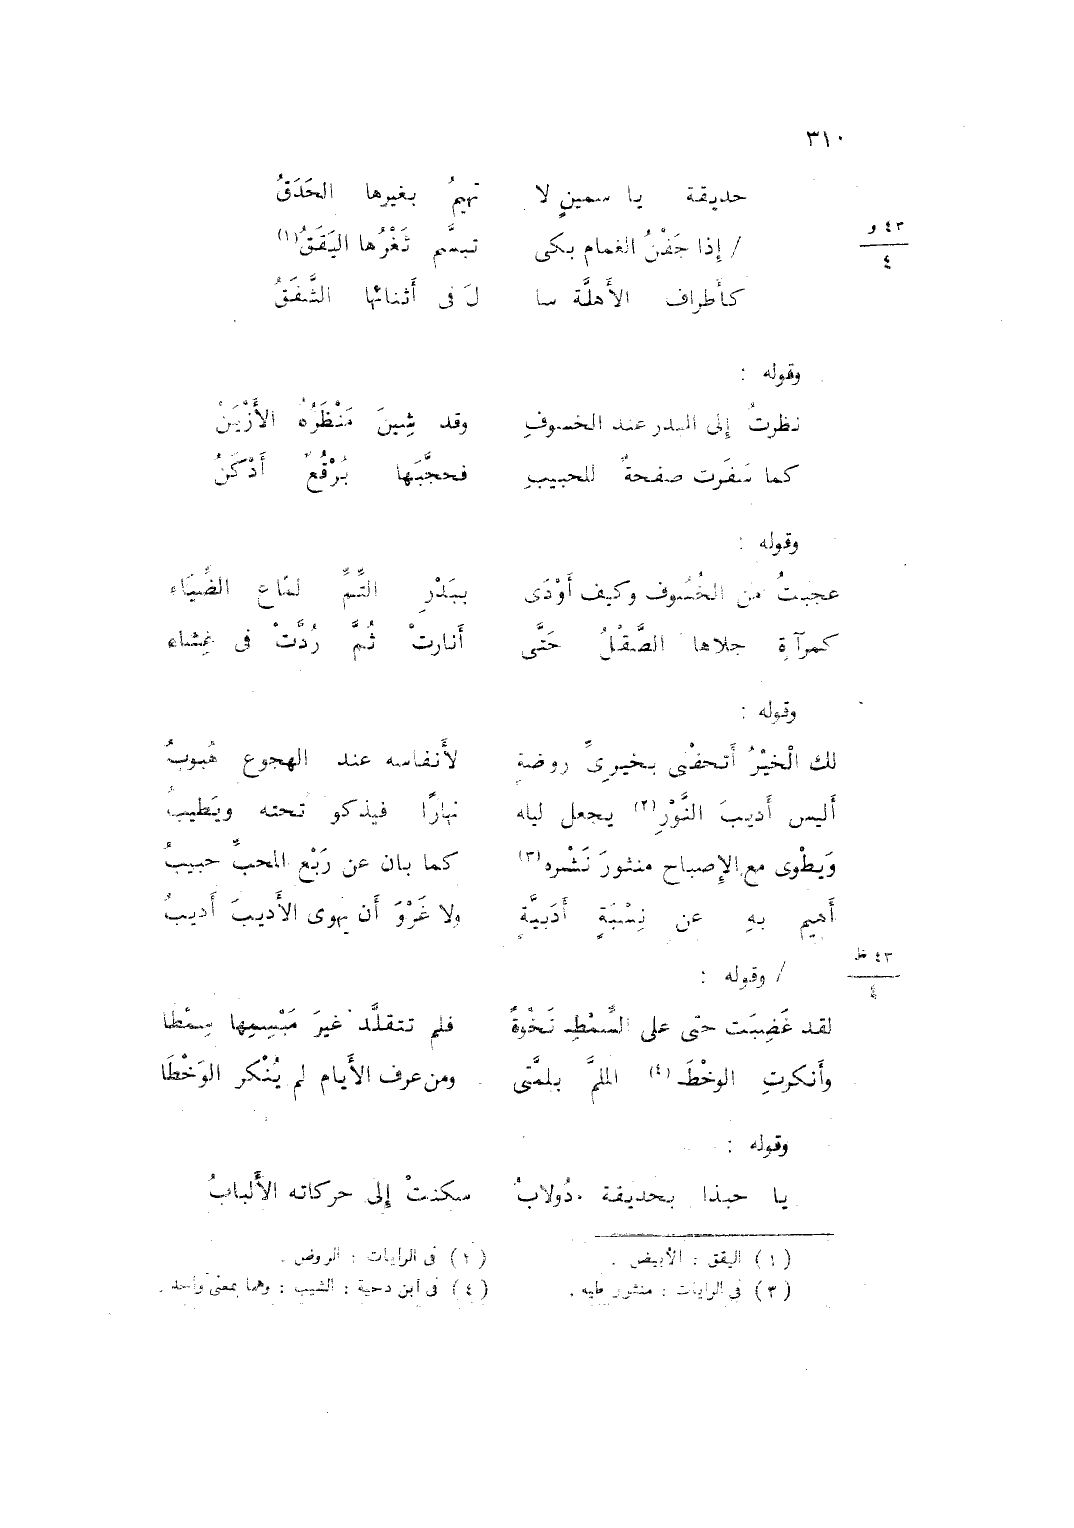 ٣١٠
حديقة يا سمينٍ لا تهيمُ بغيرها الحَدَقُ
٤٣ و
/ إذا جَفْنُ الغمام بكى تبسَّم ثَغْرُها اليَقَقُ(١)
٤
كأطراف الأَهلَّة سا لَ فى أَثنائها الشَّفَقُ
وقوله :
نظرتُ إلى البدر عند الخسوفِ وقد شِينَ مَنْظَرُهُ الأَزْيَنُ
كما سَفَرت صفحةٌ للحبيبِ فحجَّبَها بُرْقُعٌ أَدْكَنُ
وقوله :
عجبتُ من الخُسُوف وكيف أَوْدَى ببَدْرِ التِّمِّ لمَّاع الضِّيَاء
كمرآةِ جلاها الصَّقْلُ حَتَّى أَنارتْ ثُمَّ رُدَّتْ فى غِشاء
وقوله :
لك الْخيْرُ أَتحفْنى بخيرىِّ روضةٍ لأَنفاسه عند الهجوع هُبوبُ
أَليس أَديبَ النَّوْرِ(٢) يجعل ليله نهارًا فيذكو تحته ويَطيبُ
وَيطْوى مع الإِصباح منثورَ نَشْره(٣) كما بان عن رَبْع المحبِّ حبيبُ
أَهيم بهِ عن نِسْبَةٍ أَدَبيَّةٍ ولا غَرْوَ أَن يهوى الأَديبَ أَديبُ
٤٣ ظ
/ وقوله :
٤
لقد غَضِبَت حتى على السِّمْطِ نَخْوةً فلم تتقلَّد غيرَ مَبْسِمِها سِمْطا
وأَنكرتِ الوخْطَ(٤) الملمَّ بلمَّتى ومن عرف الأَيام لم يُنْكر الوَخْطَا
وقوله :
يا حبذا بحديقة دُولابُ سكنتْ إلى حركاته الأَلبابُ
(١) اليقق : الأبيض .
(٢) فى الرايات : الروض .
(٣) فى الرايات : منثور طيه .
(٤) فى ابن دحية : الشيب : وهما بمعنى واحد .